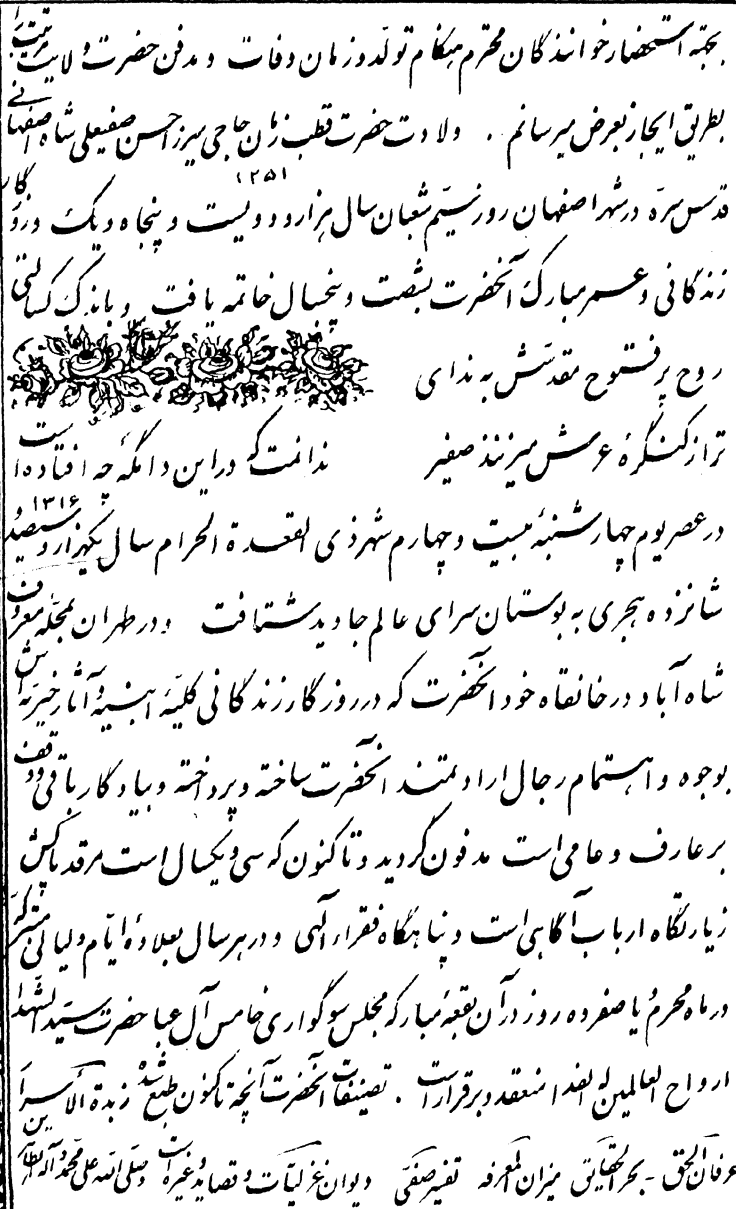 بجهة استحضار خوانندگان محترم هنگام تولد و زمان وفات و مدفن حضرت ولایت مرتبت را
بطریق ایجاز بعرض میرسانم . ولادت حضرت قطب زمان حاجی میرزا حسن صفیعلی شاه اصفهانی
۱۲۵۱
قدس سره در شهر اصفهان روز سیم شعبان سال هزار و دویست و پنجاه و یک و روزگار
زندگانی و عمر مبارک آنحضرت بشصت و پنجسال خاتمه یافت و باندک کسالتی
روح پر فتوح مقدسش به ندای
ترا ز کنگرهٔ عرش میزنند صفیر ندانمت که در این دامگه چه افتاده است
۱۳۱۶
در عصر یوم چهارشنبهٔ بیست و چهارم شهر ذی القعدة الحرام سال یکهزار و سیصد و
شانزده هجری به بوستان سرای عالم جاوید شتافت و در طهران محلهٔ معروف
شاه آباد در خانقاه خود آنحضرت که در روزگار زندگانی کلیهٔ ابنیهٔ و آثار خیریه‌اش
بوجوه و اهتمام رجال ارادتمند آنحضرت ساخته و پرداخته و بیادگار باقی و وقف
بر عارف و عامی است مدفون گردید و تاکنون که سی و یکسال است مرقد پاکش
زیارتگاه ارباب آگاهی است و پناهگاه فقراء الهی و در هر سال بعلاوهٔ ایام و لیالی متبرکه
در ماه محرم و یا صفر ده روز در آن بقعهٔ مبارکه مجلس سوگواری خامس آل عبا حضرت سید الشهدا
ارواح العالمین له الفدا منعقد و برقرار است . تصنیفات آنحضرت آنچه تاکنون طبع شده زبدة الأسرار
عرفان الحق - بحر الحقایق میزان المعرفه تفسیر صفی دیوان غزلیات و قصاید و غیره است و صلی الله علی محمد و آله الطاهرین